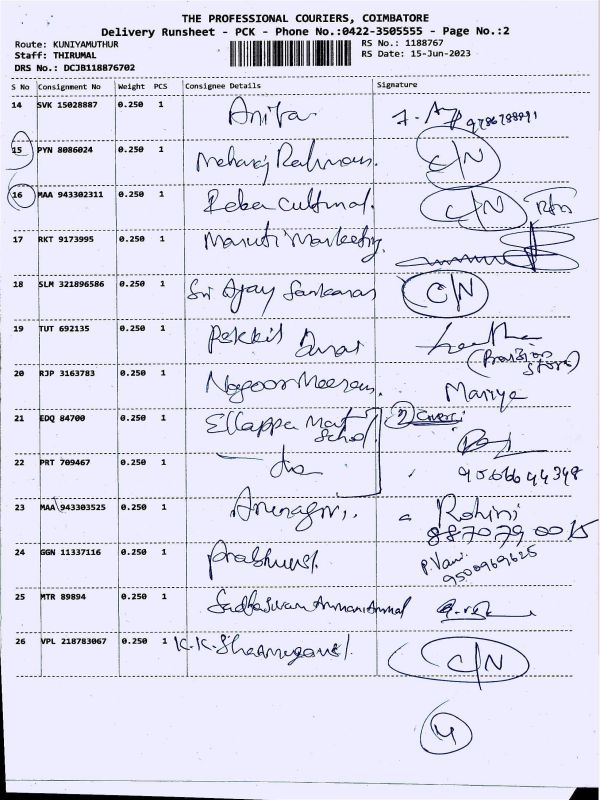 THE PROFESSIONAL COURIERS, COIMBATORE
Delivery Runsheet - PCK - Phone No.:0422-3505555 - Page No.:2
Route: KUNIYAMUTHUR RS No.: 1188767
Staff: THIRUMAL RS Date: 15-Jun-2023
DRS No.: DCJB118876702
S No Consignment No Weight PCS Consignee Details Signature
14 SVK 15028887 0.250 1 Anita 9786788891
15 PYN 8086024 0.250 1 Meharaj Rahman. C/N
16 MAA 943302311 0.250 1 Reka Cultural. C/N
17 RKT 9173995 0.250 1 Maruti Marketing.
18 SLM 321896586 0.250 1 Sri Ajay Sankaran C/N
19 TUT 692135 0.250 1
20 RJP 3163783 0.250 1 Nagoor Meeran.
21 EDQ 84700 0.250 1 Ellappa Mat School 2 Cover
22 PRT 709467 0.250 1 do
23 MAA 943303525 0.250 1 Rohini
8870790015
24 GGN 11337116 0.250 1 P. Vani
9500969625
25 MTR 89894 0.250 1
26 VPL 218783067 0.250 1 K.K. C/N
4